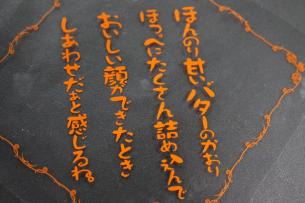 ほんのり甘いバターのかおり
ほっぺにたくさん詰め込んで
おいしい顔ができたとき
しあわせだぁと感じるね。